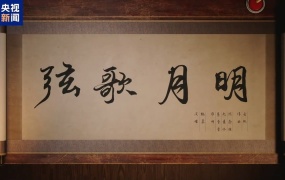 央视新闻
弦歌月明